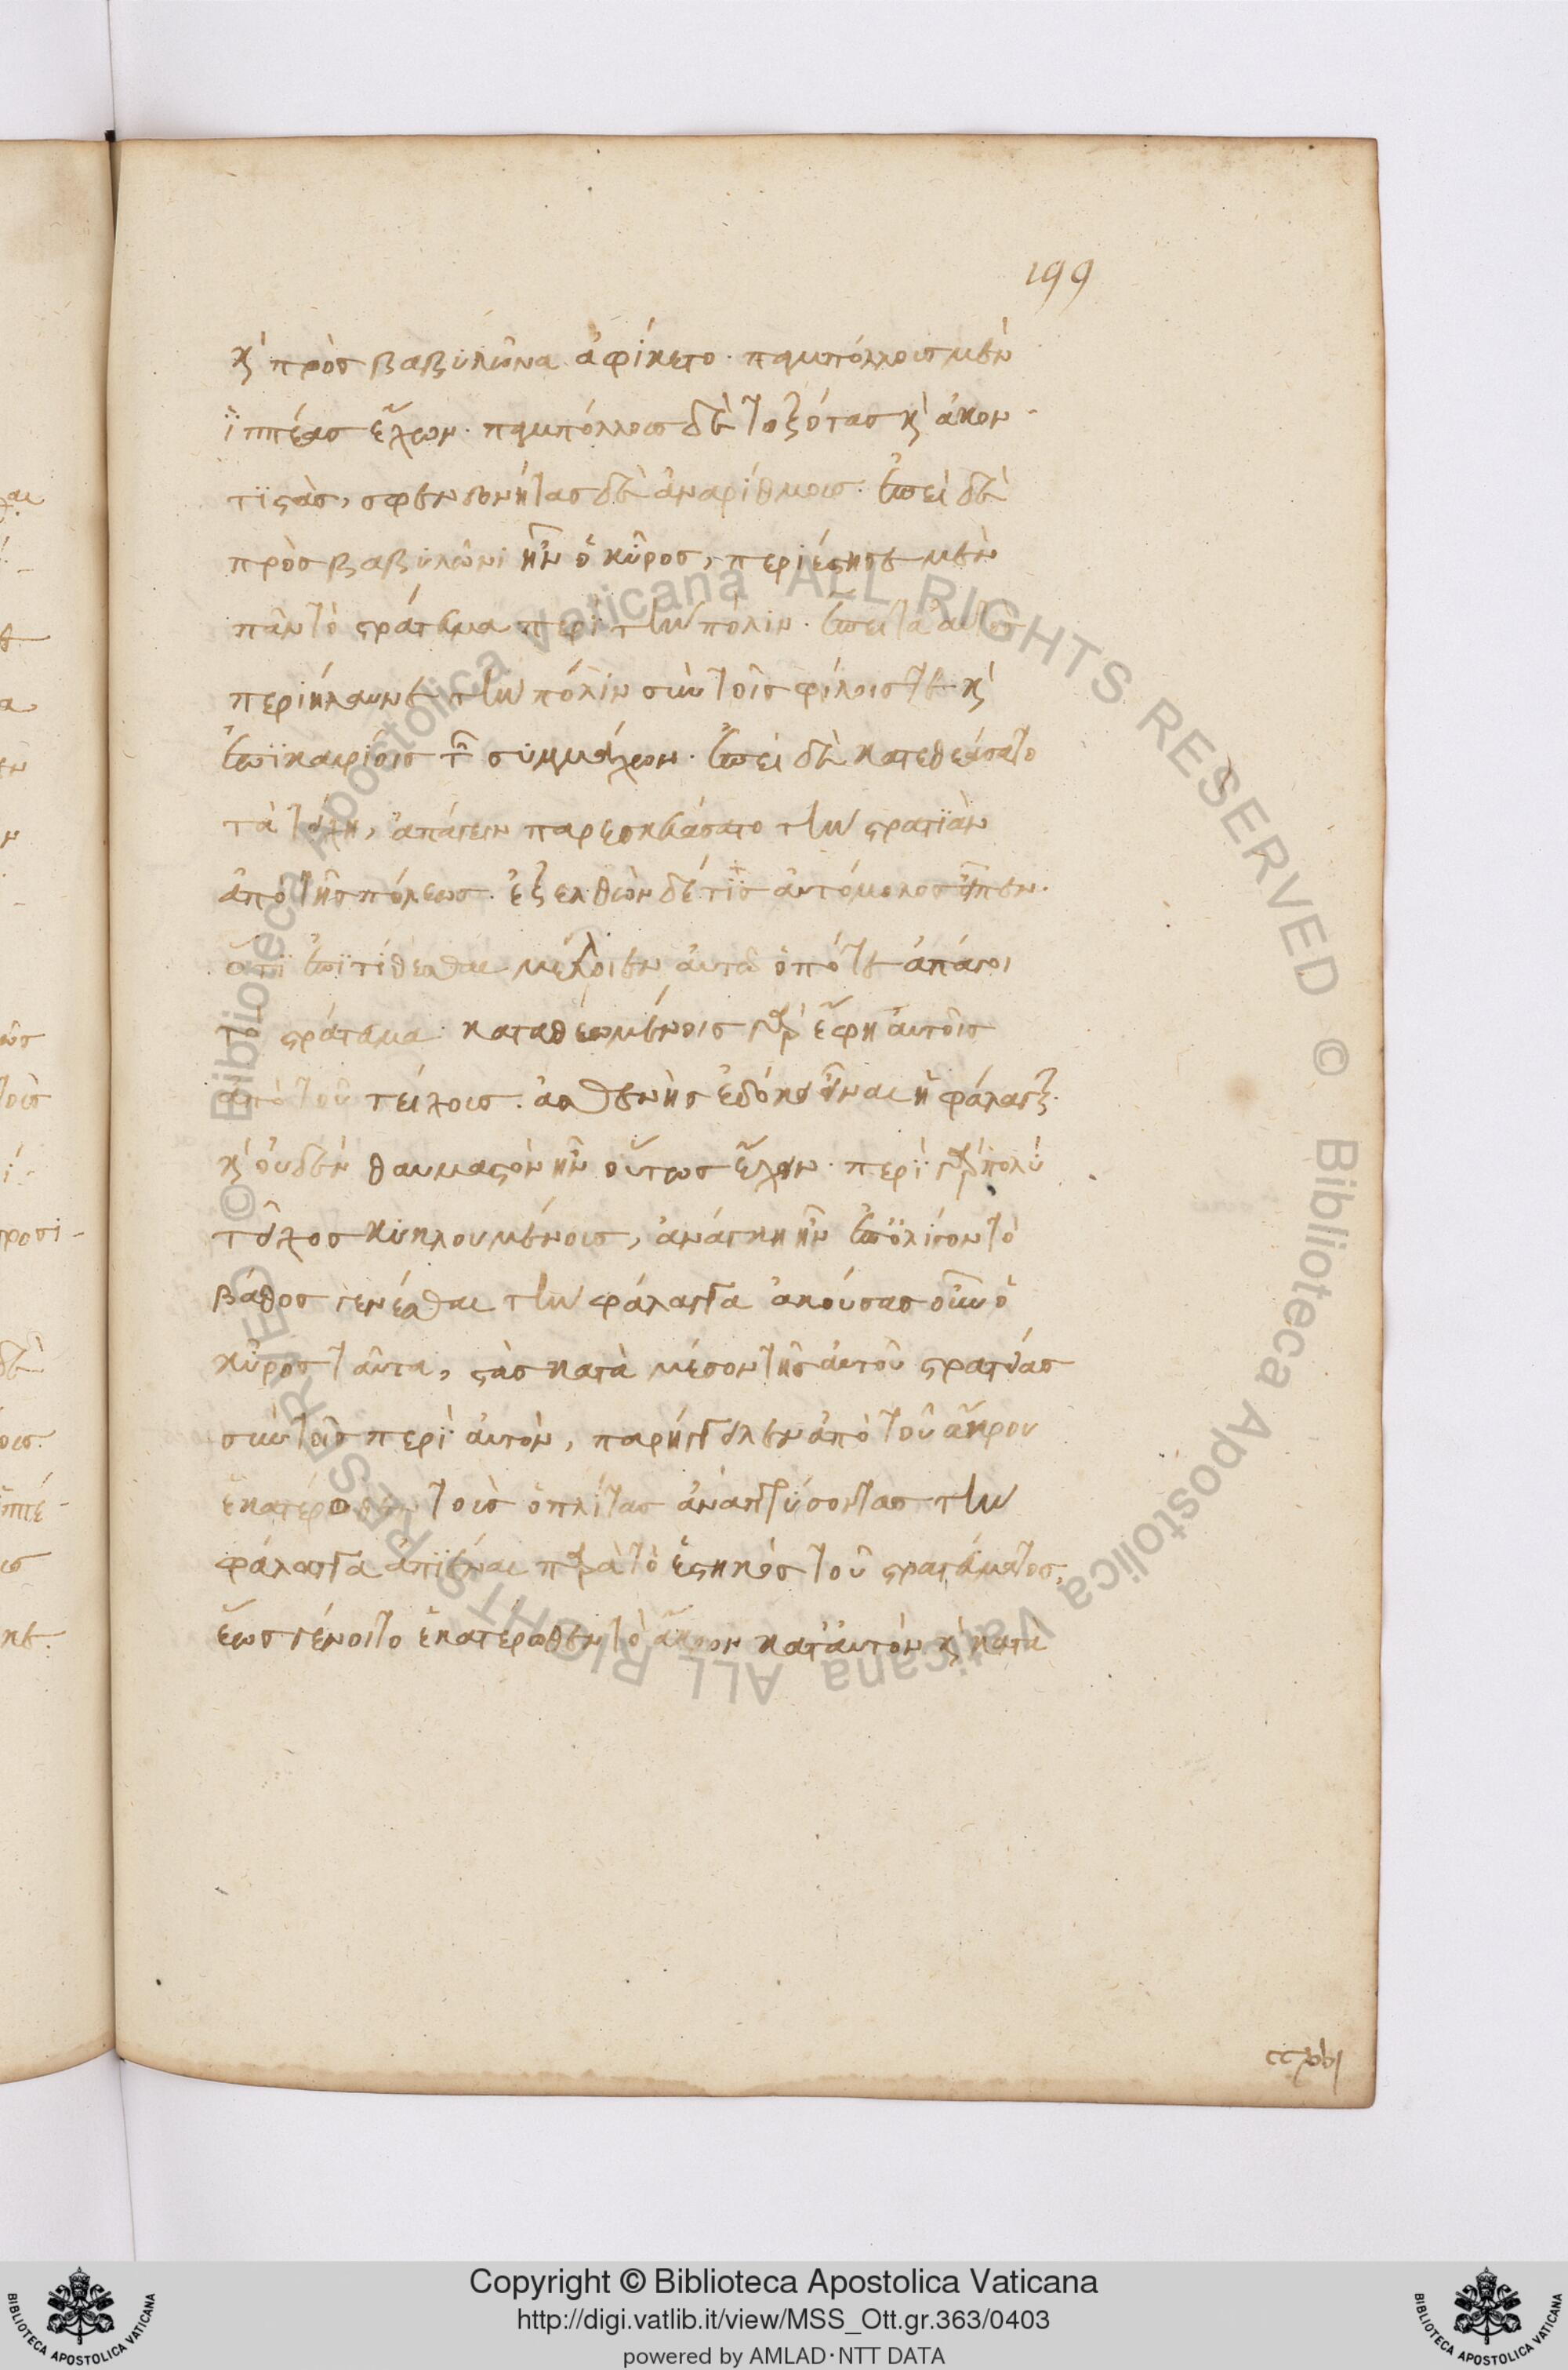 199
κ̀ πρὸσ βαβυλῶνα ἀφίκετο· παμπόλλουσ μὲν
ἱππέασ ἔχων· παμπόλλουσ δὲ τοξότασ κ̀ ἀκον-
τιςὰσ, σφενδονήτασ δὲ ἀναρίθμουσ· ἐπεὶ δὲ
πρὸσ βαβυλῶνι ἦν ὁ κῦροσ, περιέςησε μὲν
πᾶν τὸ ςράτευμα περὶ τὴν πόλιν· ἔπειτα αὐτὸσ
περιήλαυνε τὴν πόλιν σὺν τοῖσ φίλοισ τε κ̀
ἐπικαιρίοισ τῶν συμμάχων· ἐπεὶ δὲ κατεθεάσατο
τὰ τείχη, ἀπάγειν παρεσκευάσατο τὴν ςρατιὰν
ἀπὸ τῆσ πόλεωσ· ἐξελθὼν δέ τισ αὐτόμολοσ εἶπεν·
ὅτι ἐπιτίθεσθαι μέλλοιεν αὐτῶ ὁπότε ἀπάγοι
τὸ ςράτευμα· καταθεωμένοισ γὰρ ἔφη αὐτοῖσ
ἀπὸ τοῦ τείχουσ· ἀσθενὴσ ἐδόκει εἶναι ἡ φάλαγξ·
κ̀ οὐδὲν θαυμαςὸν ἦν οὕτωσ ἔχειν· περὶ γὰρ πολὺ
τεῖχοσ κυκλουμένουσ, ἀνάγκη ἦν ἐπ' ὀλίγον τὸ
βάθοσ γενέσθαι τὴν φάλαγγα ἀκούσασ οὖν ὁ
κῦροσ ταῦτα, ςὰσ κατὰ μέσον τῆσ αὐτοῦ ςρατείασ
σὺν τοῖσ περὶ αὐτὸν, παρήγγειλεν ἀπὸ τοῦ ἄκρου
ἑκατέρωθεν τοὺσ ὁπλίτασ ἀναπτύσοντασ τὴν
φάλαγγα ἀπιέναι παρὰ τὸ ἑςηκὸσ τοῦ ςρατεύματοσ,
ἕωσ γένοιτο ἑκατέρωθεν τὸ ἄκρον κατ' αὐτὸν κ̀ κατὰ
Copyright © Biblioteca Apostolica Vaticana
http://digi.vatlib.it/view/MSS_Ott.gr.363/0403
powered by AMLAD·NTT DATA